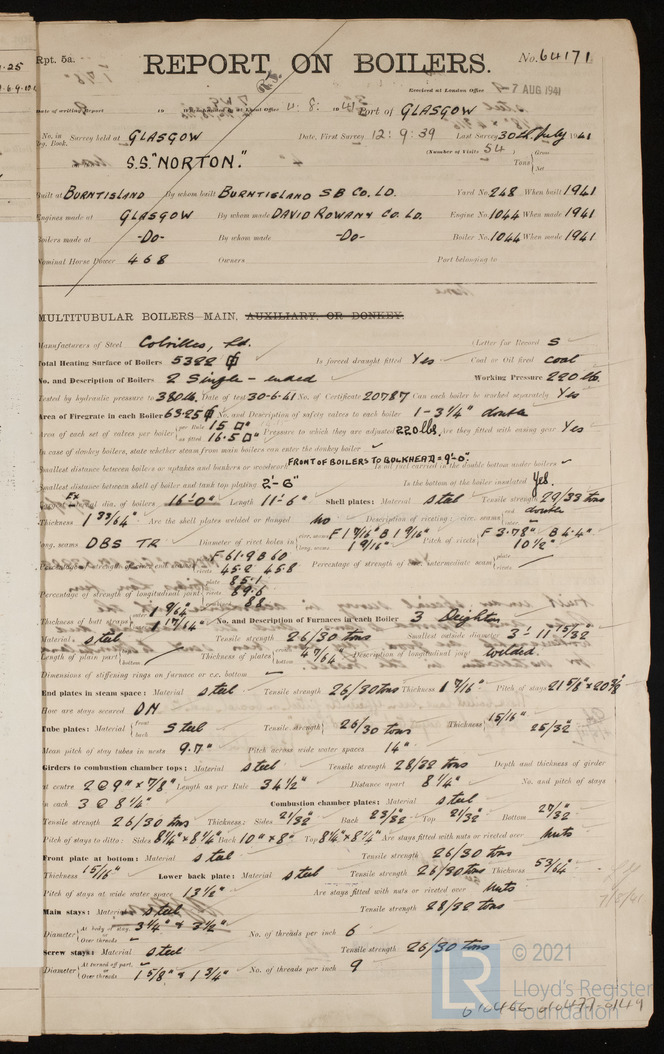 Rpt. 5a.
REPORT ON BOILERS.
No. 64171
Received at London Office 7 AUG 1941
Date of writing Report 19 When handed in at Local Office 4 : 8 : 1941 Port of GLASGOW
No. in Reg. Book. Survey held at GLASGOW Date, First Survey 12 : 9 : 39 Last Survey 30th July 1941
(Number of Visits 54)
Gross
Tons
Net
S.S. "NORTON."
Built at BURNTISLAND By whom built BURNTISLAND S B CO. LD. Yard No. 248 When built 1941
Engines made at GLASGOW By whom made DAVID ROWAN & CO. LD. Engine No. 1044 When made 1941
Boilers made at -DO- By whom made -DO- Boiler No. 1044 When made 1941
Nominal Horse Power 468 Owners Port belonging to
MULTITUBULAR BOILERS MAIN, AUXILIARY, OR DONKEY.
Manufacturers of Steel Colvilles, Ld. (Letter for Record S
Total Heating Surface of Boilers 5322 Is forced draught fitted Yes Coal or Oil fired coal
No. and Description of Boilers 2 Single-ended Working Pressure 220 lb.
Tested by hydraulic pressure to 380 lb. Date of test 30-6-41 No. of Certificate 20787 Can each boiler be worked separately Yes
Area of Firegrate in each Boiler 63.25 No. and Description of safety valves to each boiler 1 - 3¼" double
Area of each set of valves per boiler per Rule 15 □" as fitted 16.5 □" Pressure to which they are adjusted 220 lbs. Are they fitted with easing gear Yes
In case of donkey boilers, state whether steam from main boilers can enter the donkey boiler
Smallest distance between boilers or uptakes and bunkers or woodwork FRONT OF BOILERS TO BULKHEAD = 9'-0" Is oil fuel carried in the double bottom under boilers
Smallest distance between shell of boiler and tank top plating 2'-6" Is the bottom of the boiler insulated Yes.
Ex dia. of boilers 16'-0" Length 11'-6" Shell plates: Material steel Tensile strength 29/33 tons
Thickness 1 33/64" Are the shell plates welded or flanged no Description of riveting: circ. seams end double
long. seams DBS TR Diameter of rivet holes in circ. seams F 1 7/16" B 1 9/16" long. seams 1 9/16" Pitch of rivets F 3.78" B 4.4" 10½"
F 61.9 B 60
45.2 45.8 Percentage of strength of circ. intermediate seam
Percentage of strength of longitudinal joint plate 85.1 rivets 89.6 88
Thickness of butt straps 1 9/64" 1 17/64" No. and Description of Furnaces in each Boiler 3 Deighton
Material steel Tensile strength 26/30 tons Smallest outside diameter 3'-11 15/32"
Length of plain part bottom Thickness of plates bottom 47/64" Description of longitudinal joint welded.
Dimensions of stiffening rings on furnace or c.c. bottom
End plates in steam space: Material steel Tensile strength 26/30 tons Thickness 1 7/16" Pitch of stays 21 5/8" x 20⅜"
How are stays secured DN
Tube plates: Material front back Steel Tensile strength 26/30 tons Thickness 15/16" 25/32"
Mean pitch of stay tubes in nests 9.7" Pitch across wide water spaces 14"
Girders to combustion chamber tops: Material steel Tensile strength 28/32 tons Depth and thickness of girder
at centre 2 @ 9" x 7/8" Length as per Rule 34½" Distance apart 8¼" No. and pitch of stays
in each 3 @ 8¼" Combustion chamber plates: Material steel
Tensile strength 26/30 tons Thickness: Sides 21/32" Back 23/32" Top 21/32" Bottom 27/32"
Pitch of stays to ditto: Sides 8¼" x 8¼" Back 10" x 8" Top 8¼" x 8¼" Are stays fitted with nuts or riveted over nuts
Front plate at bottom: Material steel Tensile strength 26/30 tons
Thickness 15/16" Lower back plate: Material steel Tensile strength 26/30 tons Thickness 53/64"
Pitch of stays at wide water space 13½" Are stays fitted with nuts or riveted over nuts
Main stays: Material steel Tensile strength 28/32 tons
Diameter At body of stay, Over threads 3¼" & 3½" No. of threads per inch 6
Screw stays: Material steel Tensile strength 26/30 tons
Diameter At turned off part, Over threads 1 5/8" & 1¾" No. of threads per inch 9
7/5/41
© 2021
LR
Lloyd's Register
Foundation
010466-010477-0149